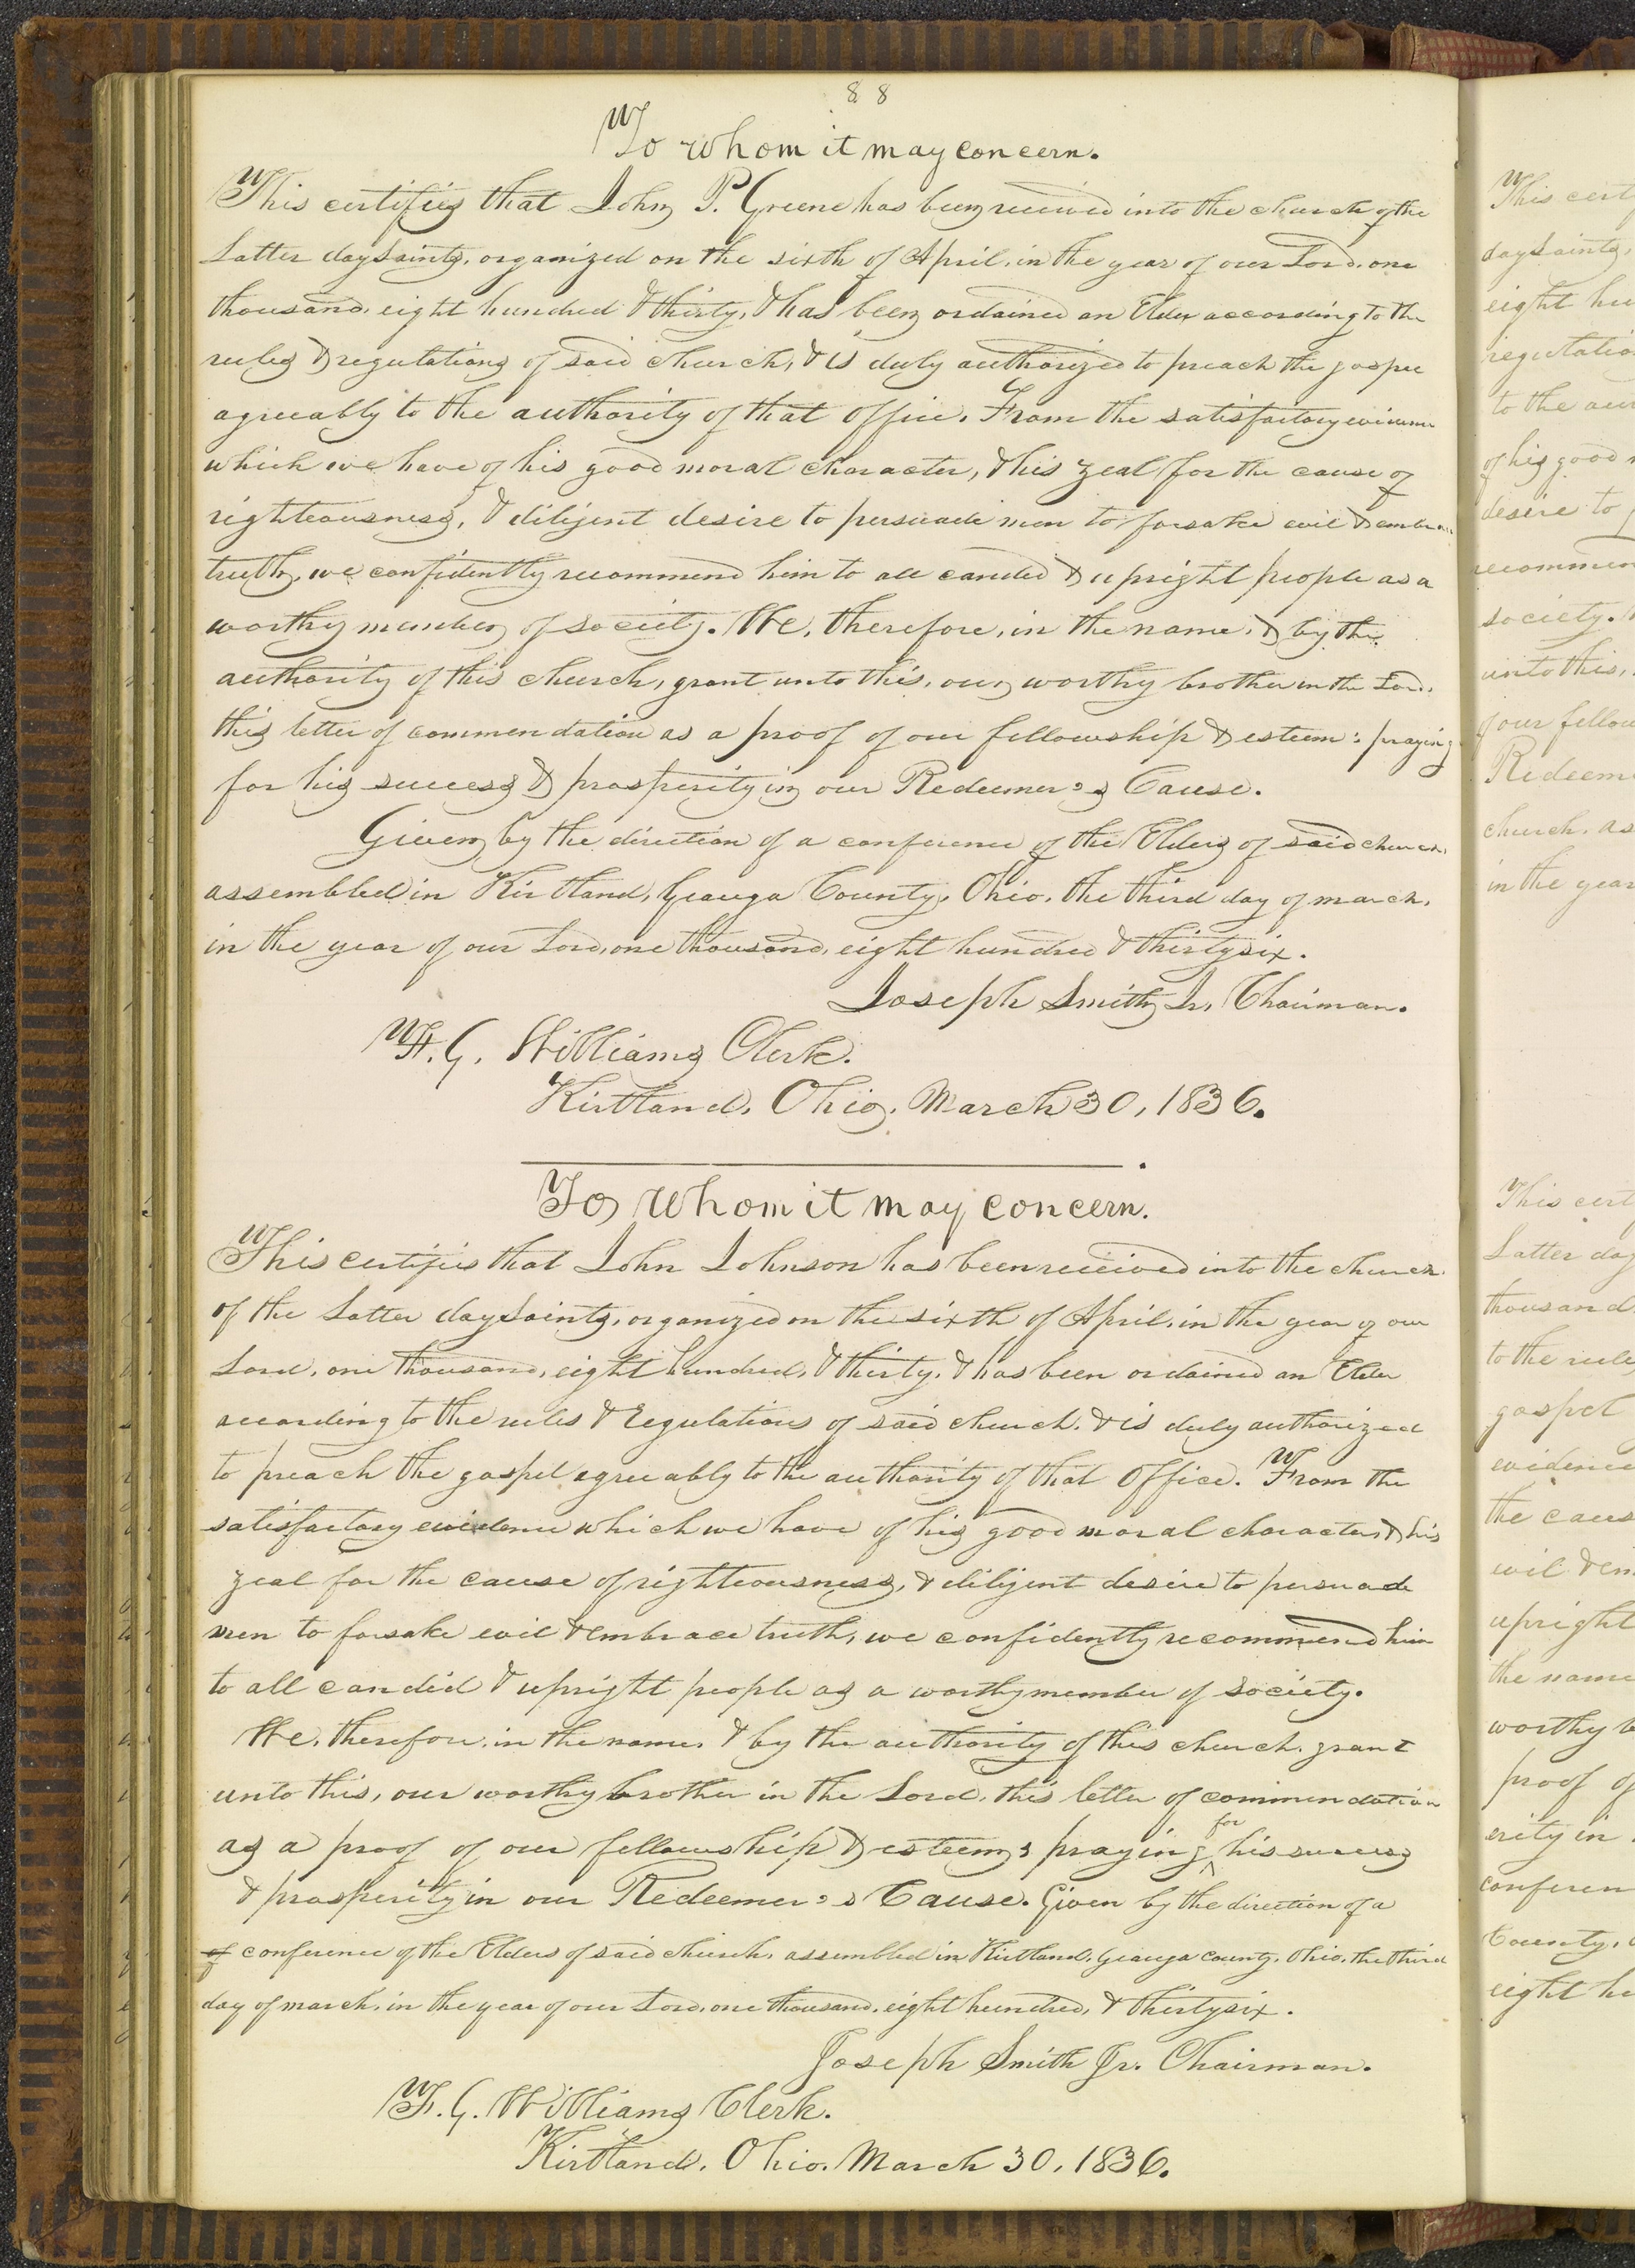 88
To whom it may concern.
This certifies that John P. Greene has been received into the church of the
Latter day Saints, organized on the sixth of April, in the year of our Lord, one
thousand, eight hundred & thirty, & has been ordained an Elder according to the
rules & regulations of said church, & is duly authorized to preach the gospel
agreeably to the authority of that office. From the satisfactory evidence
which we have of his good moral character, & his zeal for the cause of
righteousness, & diligent desire to persuade men to forsake evil & embrace
truth, we confidently recommend him to all candid & upright people as a
worthy member of society. We, therefore, in the name, & by the
authority of this church, grant unto this, our worthy brother in the Lord,
this letter of commendation as a proof of our fellowship & esteem: praying
for his success & prosperity in our Redeemer's Cause.
Given by the direction of a conference of the Elders of said church,
assembled in Kirtland, Geauga County, Ohio, the third day of march,
in the year of our Lord, one thousand, eight hundred & thirty six.
Joseph Smith Jr. Chairman.
F. G. Williams Clerk.
Kirtland, Ohio, March 30, 1836.
To whom it may concern.
This certifies that John Johnson has been received into the church
of the Latter day Saints, organized on the sixth of April, in the year of our
Lord, one thousand, eight hundred, & thirty, & has been ordained an Elder
according to the rules & regulations of said church, & is duly authorized
to preach the gospel agreeably to the authority of that office. From the
satisfactory evidence which we have of his good moral character, & his
zeal for the cause of righteousness, & diligent desire to persuade
men to forsake evil & embrace truth, we confidently recommend him
to all candid & upright people as a worthy member of society.
We, therefore, in the name, & by the authority of this church, grant
unto this, our worthy brother in the Lord, this letter of commendation
as a proof of our fellowship & esteem: praying for his success
& prosperity in our Redeemer's Cause. Given by the direction of a
of conference of the Elders of said church, assembled in Kirtland, Geauga County, Ohio, the third
day of march, in the year of our Lord, one thousand, eight hundred, & thirty six.
Joseph Smith Jr. Chairman.
F. G. Williams Clerk.
Kirtland, Ohio, March 30, 1836.
This cert
day Saints,
eight hu
regulatio
to the au
of his good m
desire to
recommen
society.
unto this,
of our fellow
Redeem
church, as
in the year
This cert
Latter day
thousand
to the rule
gospel
evidence
the caus
evil & em
upright
the name
worthy b
proof of
erity in
conferen
County,
eight hu